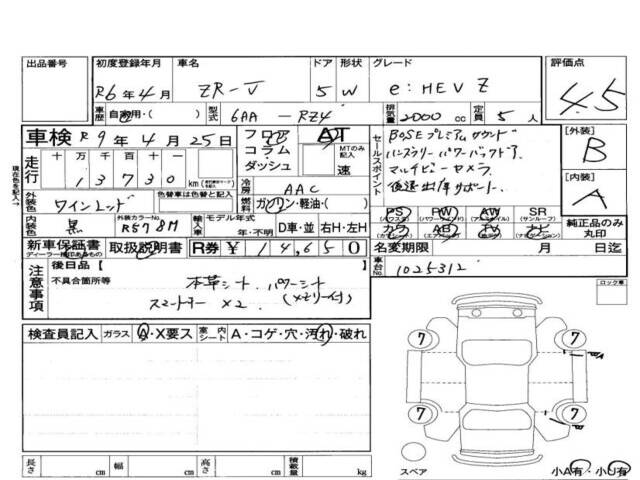 出品番号 初度登録年月 車名 ドア 形状 グレード 評価点
R6年4月 ZR-V 5 W e:HEV Z 4.5
車歴 自家用・( ) 型式 6AA-RZ4 排気量 2000 cc 定員 5人
車検 R9年4月25日 フロア コラム ダッシュ AT MTのみ記入 速
セールスポイント BOSEプレミアムサウンド
ハンズフリーパワーバックドア
マルチビューカメラ
後退出庫サポート
[外装] B
[内装] A
走行 十万千百十 13730 km
冷房 AAC
外装色 ワインレッド 色替車は色替前の色( ) 燃料 ガソリン・軽油・( )
内装色 黒 外装カラーNo. R578M 輸入車 モデル年式 年・不明 D車・並 右H・左H
PS PW AW SR (サンルーフ)
カワ AB TV ナビ
純正品のみ丸印
新車保証書 取扱説明書 R券 ¥14,650 名変期限 月 日迄
ディーラー捺印あるもの
注意事項 後日品【 】
不具合箇所等 本革シート、パワーシート
スマートキー×2 (メモリー付)
車台No. 1025312
ロック車
検査員記入 ガラス A・X要ス 室内シート A・コゲ・穴・汚れ・破れ
7 7
7 7
スペア 小A有・小U有
長さ cm 幅 cm 高さ cm 積載量 kg
現在色を記入→